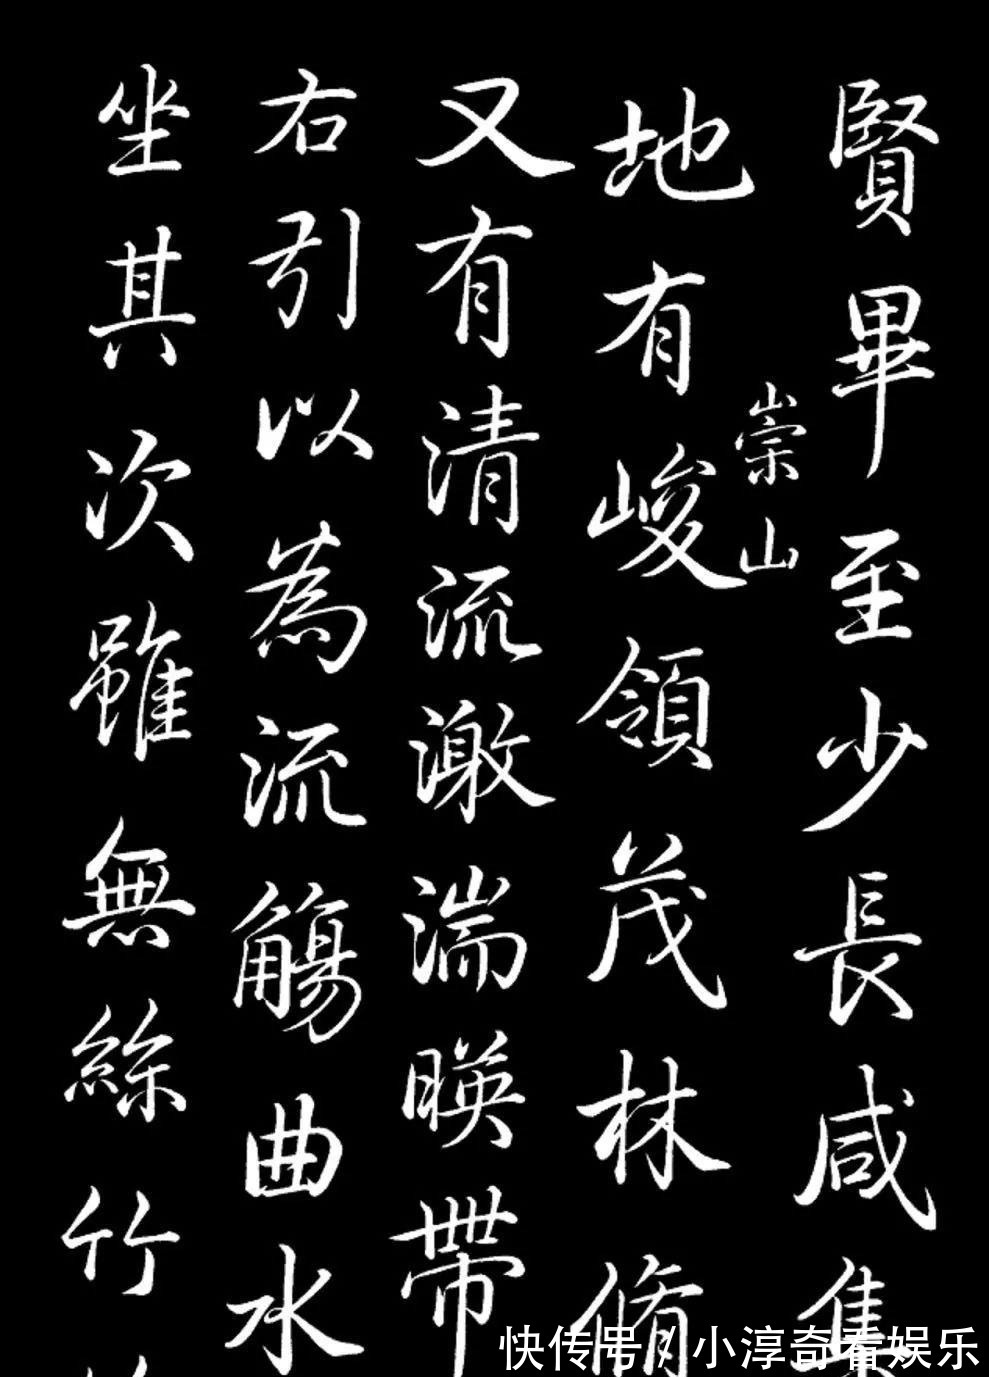 賢畢至少長咸集
崇山
地有峻領茂林脩
又有清流激湍暎帶
右引以為流觴曲水
坐其次雖無絲竹
快传号/小淳奇看娱乐